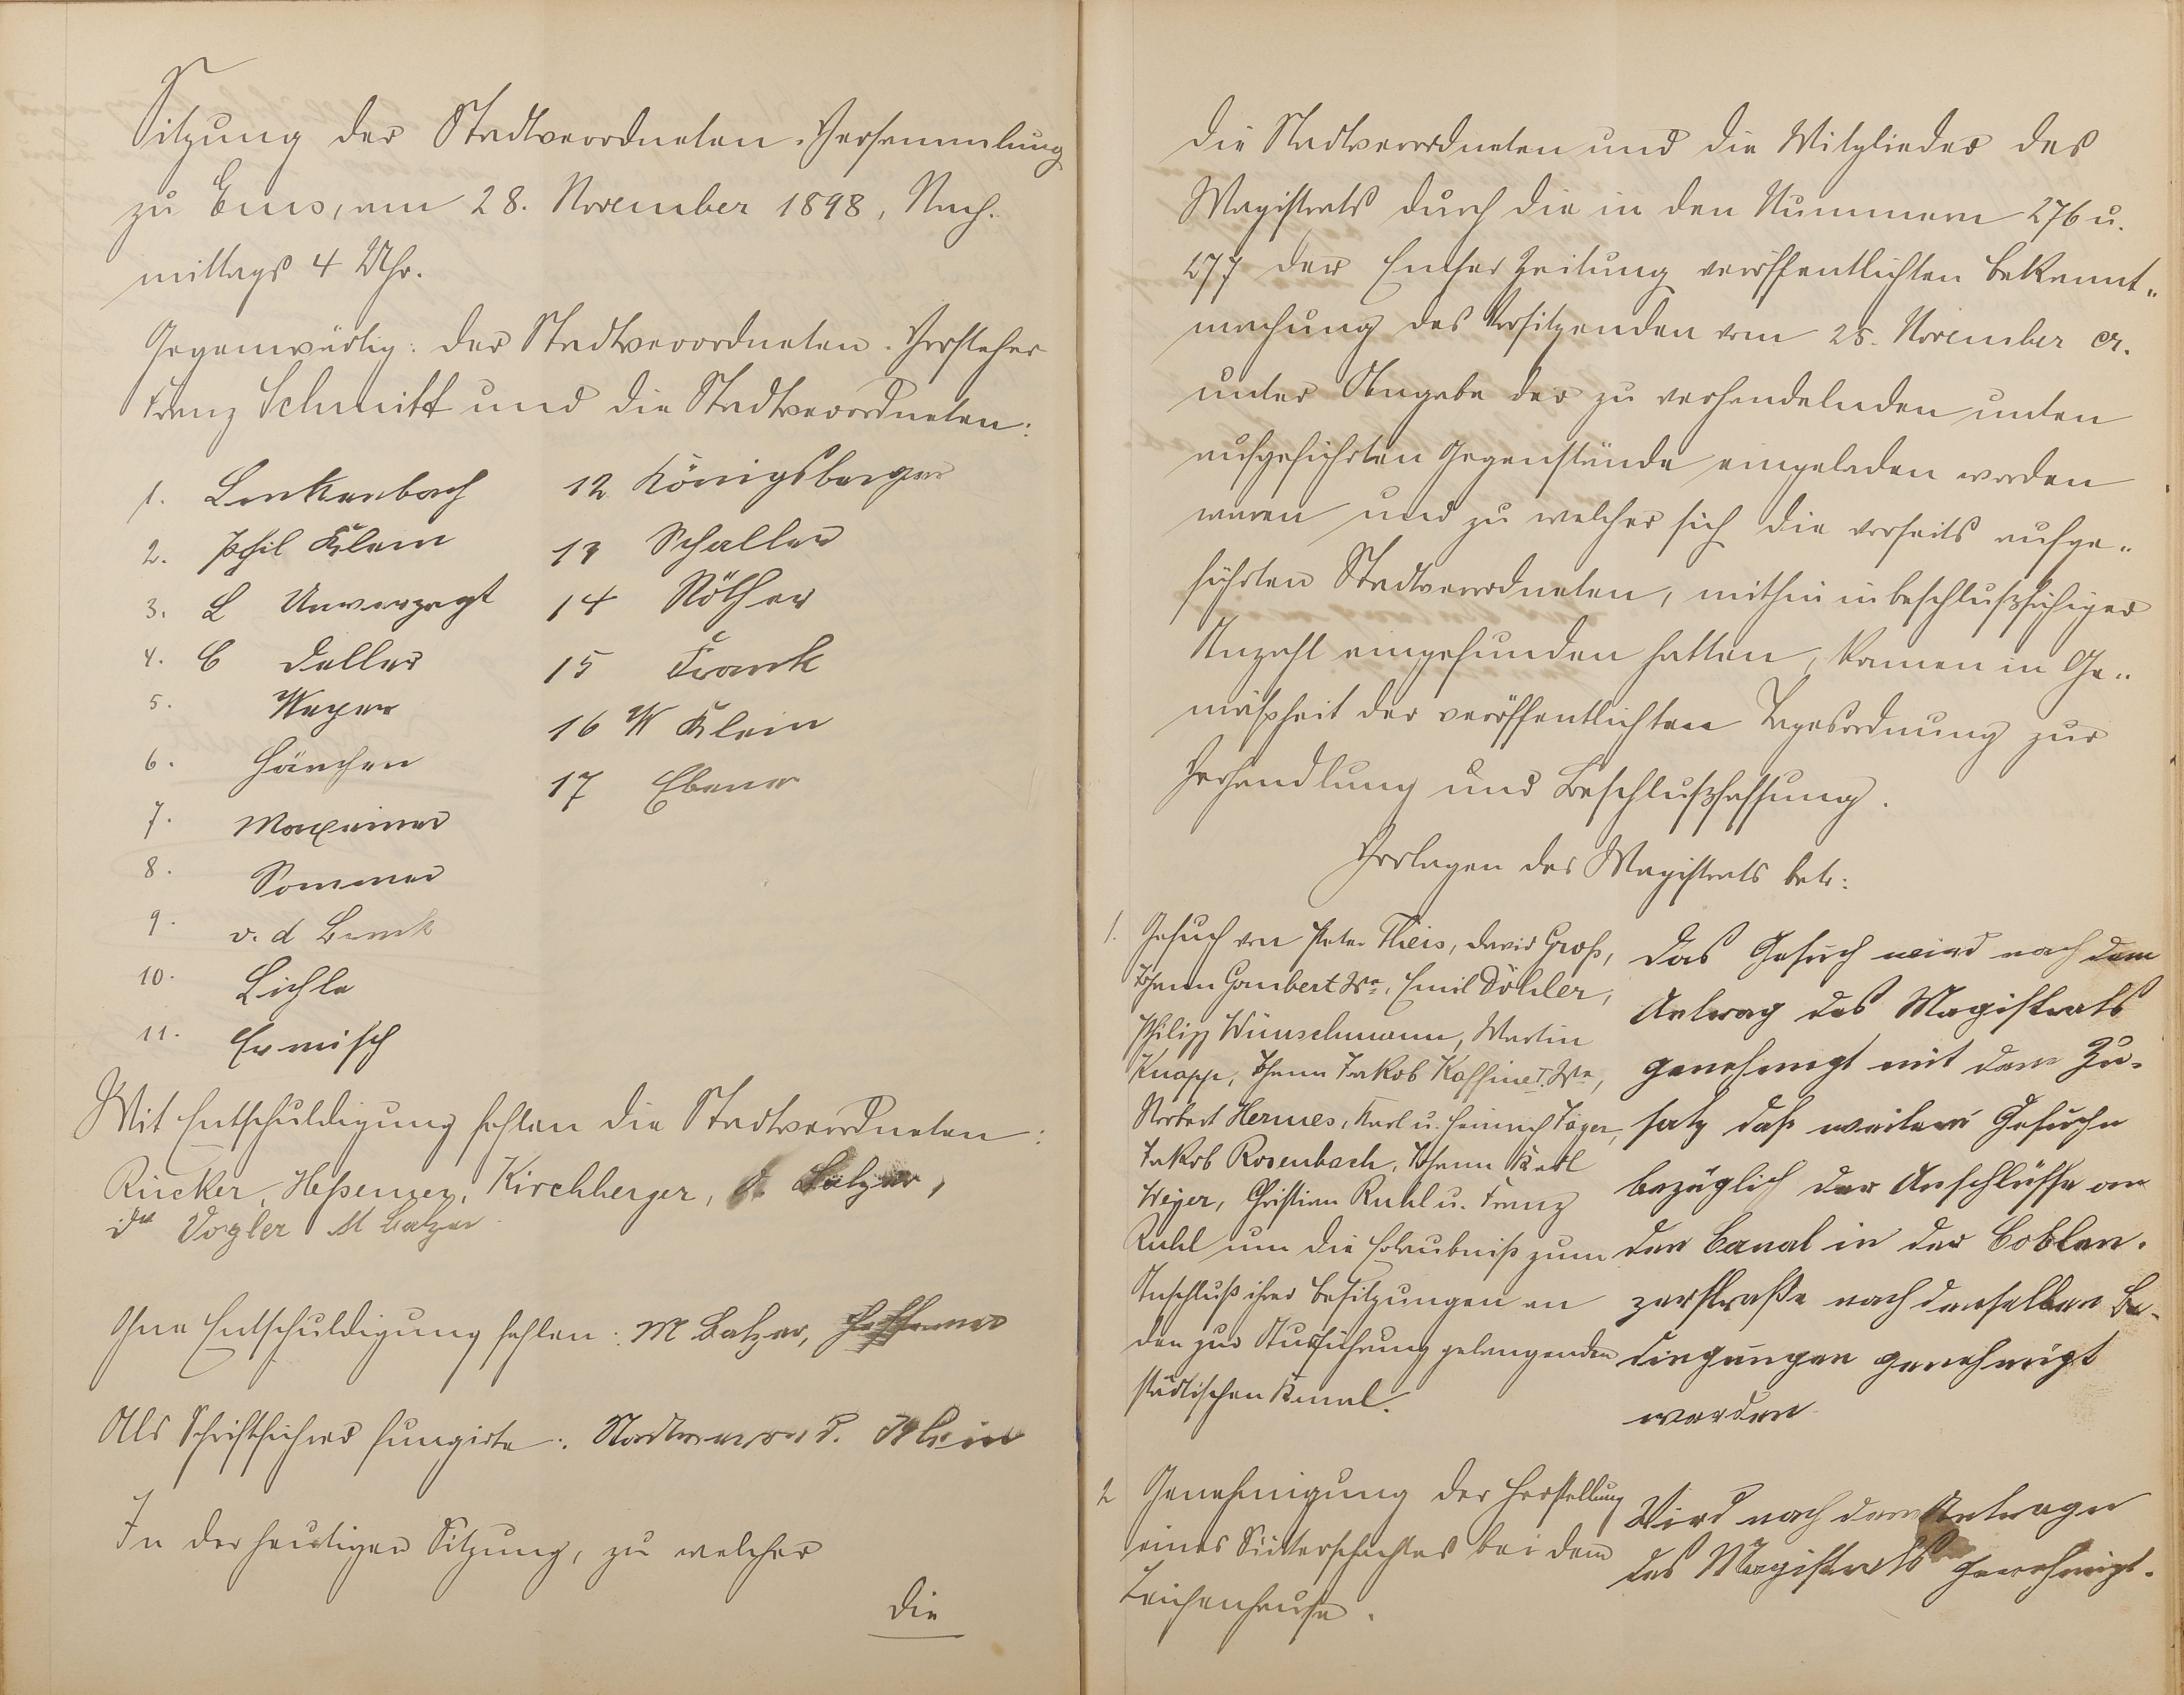 Sitzung der Stadtverordneten-Versammlung
zu Ems, am 28. November 1898, Nach-
mittags 4 Uhr.
Gegenwärtig: der Stadtverordneten-Vorsteher
Franz Schmitt und die Stadtverordneten:
1. Linkenbach
2. Phil Klein
3. L Unverzagt
4. C Deller
5. Weyer
6. Hänchen
7. Maxeiner
8. Sommer
9. v. d Brück
10. Lichle
11. Ermisch
12 Königsberger
13 Schaller
14 Röther
15 Franck
16 W Klein
17 Ebener
Mit Entschuldigung fehlen die Stadtverordneten:
Rücker, Heßemer, Kirchberger, Balzer,
Dr Vogler M Balzer
Ohne Entschuldigung fehlen: M Balzer, Hessemer
Als Schriftführer fungirte: Stadtverord. Klein
In der heutigen Sitzung, zu welcher
die
die Stadtverordneten und die Mitglieder des
Magistrats durch die in den Nummern 276 u.
277 der Emser Zeitung veröffentlichten Bekannt-
machung des Vorsitzenden vom 25. November cr.
unter Angabe der zu verhandelnden unten
aufgeführten Gegenstände eingeladen worden
waren und zu welcher sich die vorseits aufge-
führten Stadtverordneten, mithin in beschlußfähiger
Anzahl eingefunden hatten, kamen in Ge-
mäßheit der veröffentlichten Tagesordnung zur
Verhandlung und Beschlußfassung.
Vorlagen des Magistrats betr:
1. Gesuch von Peter Theis, David Groß,
Johann Gombert We, Emil Döhler,
Philipp Wünschmann, Martin
Knapp, Johann Jakob Kaffine I. We,
Norbert Hermes, Karl u. Heinrich Jäger,
Jakob Rosenbach, Johann Karl
Weyer, Christian Ruhl u. Franz
Ruhl um die Erlaubniß zum
Anschluß ihrer Besitzungen an
den zur Ausführung gelangenden
städtischen Kanal.
Das Gesuch wird nach dem
Antrag des Magistrats
genehmigt mit dem Zu-
satz daß weitere Gesuche
bezüglich der Anschlüsse an
den Canal in der Coblen-
zerstraße nach denselben Be-
dingungen genehmigt
werden
2 Genehmigung der Herstellung
eines Sickerschachtes bei dem
Leichenhause.
Wird nach dem Antrage
des Magistrats genehmigt.